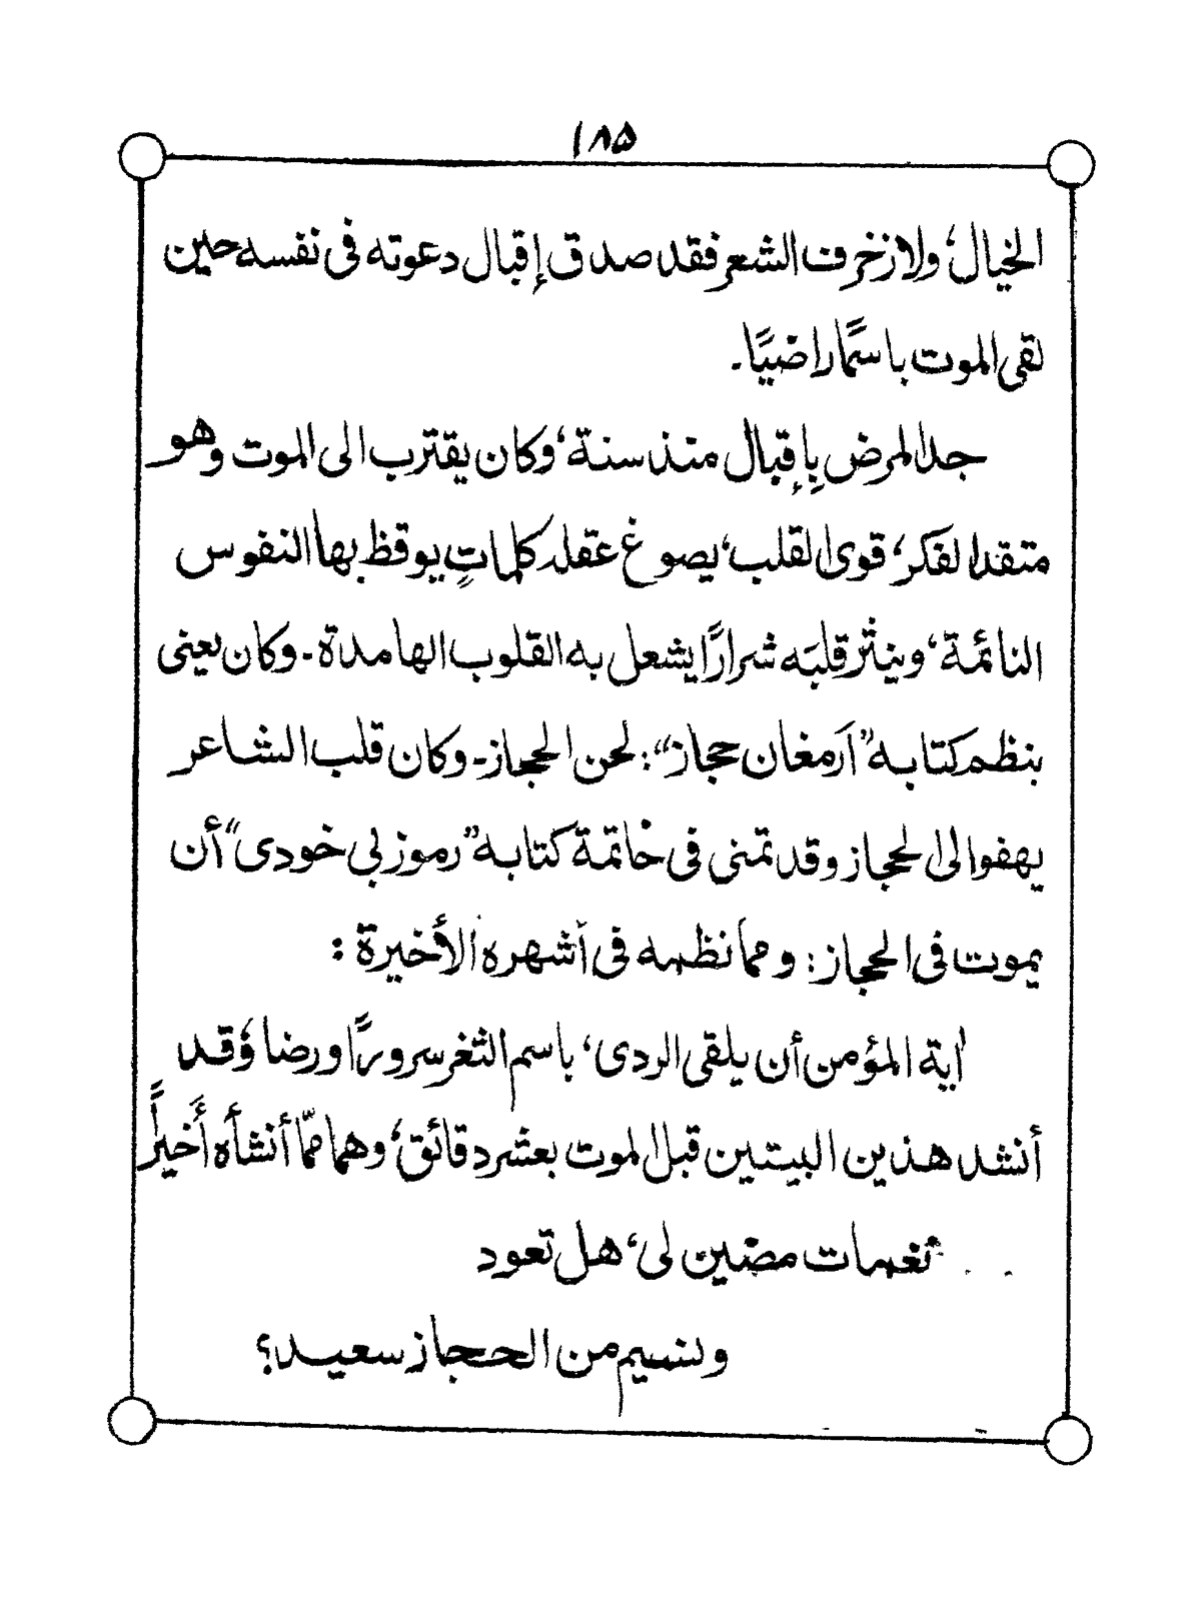 ۱۸۵
الخيال، ولا زخرف الشعر فقد صدق إقبال دعوته فى نفسه حين
لقى الموت باسمًا راضيًا۔
جدا المرض بإقبال منذ سنة، وكان يقترب الى الموت وهو
متقد الفكر، قوى القلب، يصوغ عقله كلماتٍ يوقظ بها النفوس
النائمة، وينثر قلبَه شرارًا يشعل به القلوب الهامدة۔ وكان يعنى
بنظم كتابه ”اَرمغان حجاز“: لحن الحجاز۔ وكان قلب الشاعر
يهفوا لى الحجاز وقد تمنى فى خاتمة كتابه ”رموز بى خودى“ أن
يموت فى الحجاز: ومما نظمه فى أشهره الأخيرة :
اٰية المؤمن أن يلقى الردى، باسم الثغر سرورًا ورضا، وقد
أنشد هذين البيتين قبل الموت بعشر دقائق، وهما ممّا أنشأه أَخيرًا
نغمات مضين لى، هل تعود
ونسيم من الحجاز سعيد؟